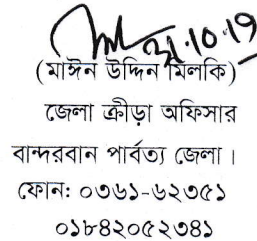 31.10.19
(মাঈন উদ্দিন মিলকি)
জেলা ক্রীড়া অফিসার
বান্দরবান পার্বত্য জেলা।
ফোন: ০৩৬১-৬২৩৫১
০১৮৪২০৫২৩৪১